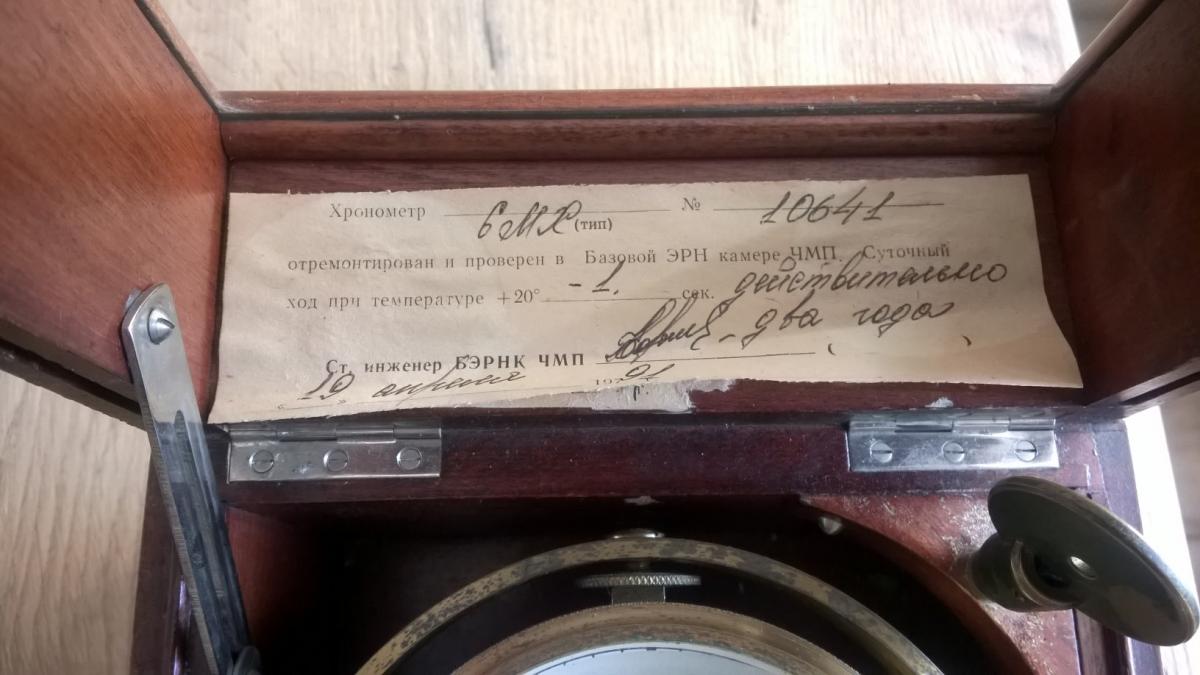 Хронометр 6МХ № 10641
(тип)
отремонтирован и проверен в Базовой ЭРН камере ЧМП. Суточный
ход при температуре +20° -1. сек. действительно
два года
Ст. инженер БЭРНК ЧМП ( )
19 апреля 91 г.